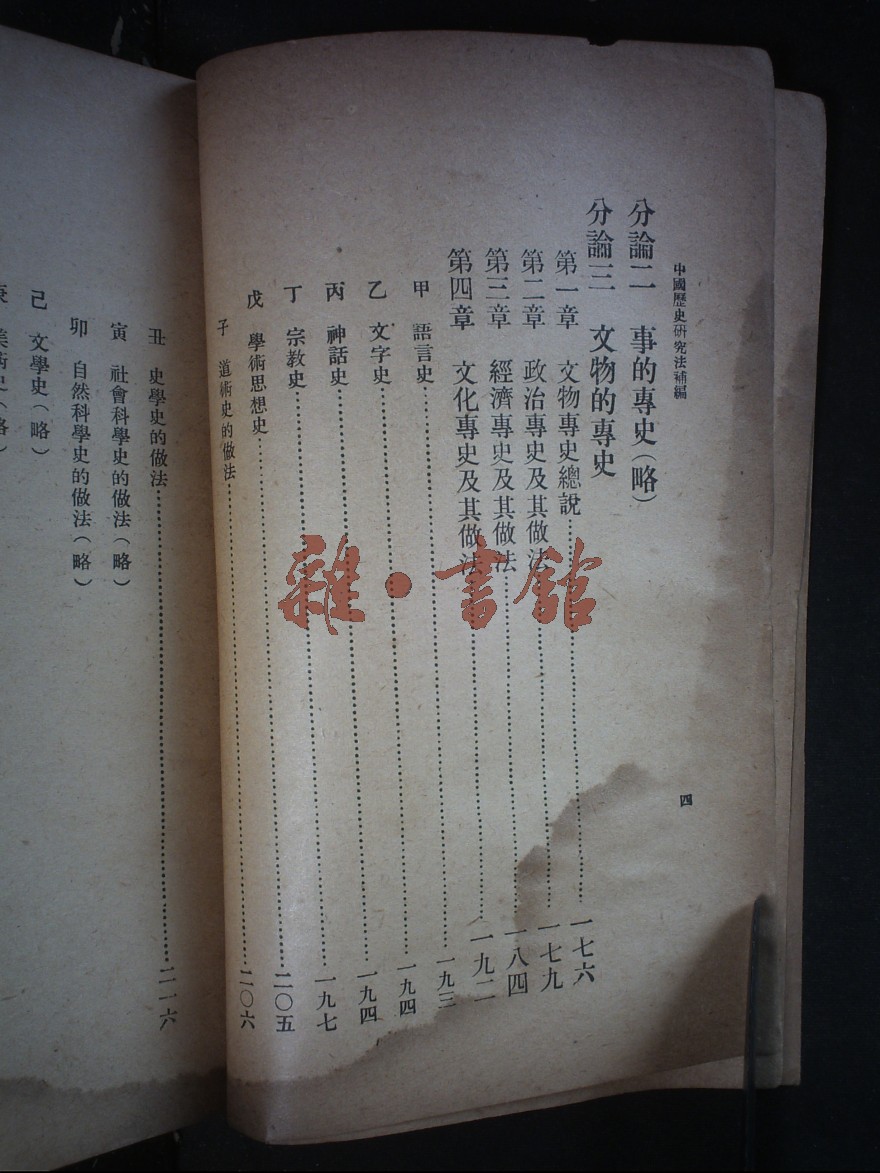 中國歷史研究法補編 四
分論二 事的專史(略)
分論三 文物的專史
第一章 文物專史總說……一七六
第二章 政治專史及其做法……一七九
第三章 經濟專史及其做法……一八四
第四章 文化專史及其做法……一九二
甲 語言史……一九三
乙 文字史……一九四
丙 神話史……一九四
丁 宗教史……一九七
戊 學術思想史……二〇五
子 道術史的做法……二〇六
丑 史學史的做法……二一六
寅 社會科學史的做法(略)
卯 自然科學史的做法(略)
己 文學史(略)
雜·書館